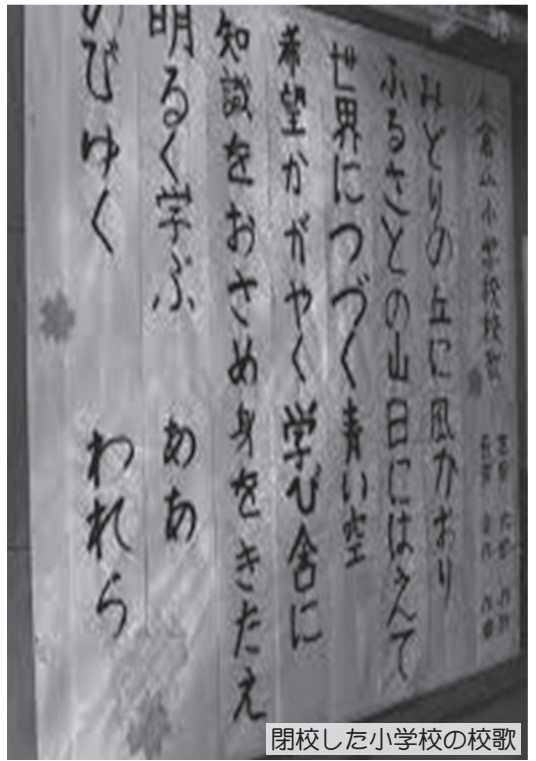 倉山小学校校歌
みどりの丘に風かおり
ふるさとの山日にはえて
世界につづく青い空
希望かがやく学び舎に
知識をおさめ身をきたえ
明るく学ぶ ああ
のびゆく われら
閉校した小学校の校歌